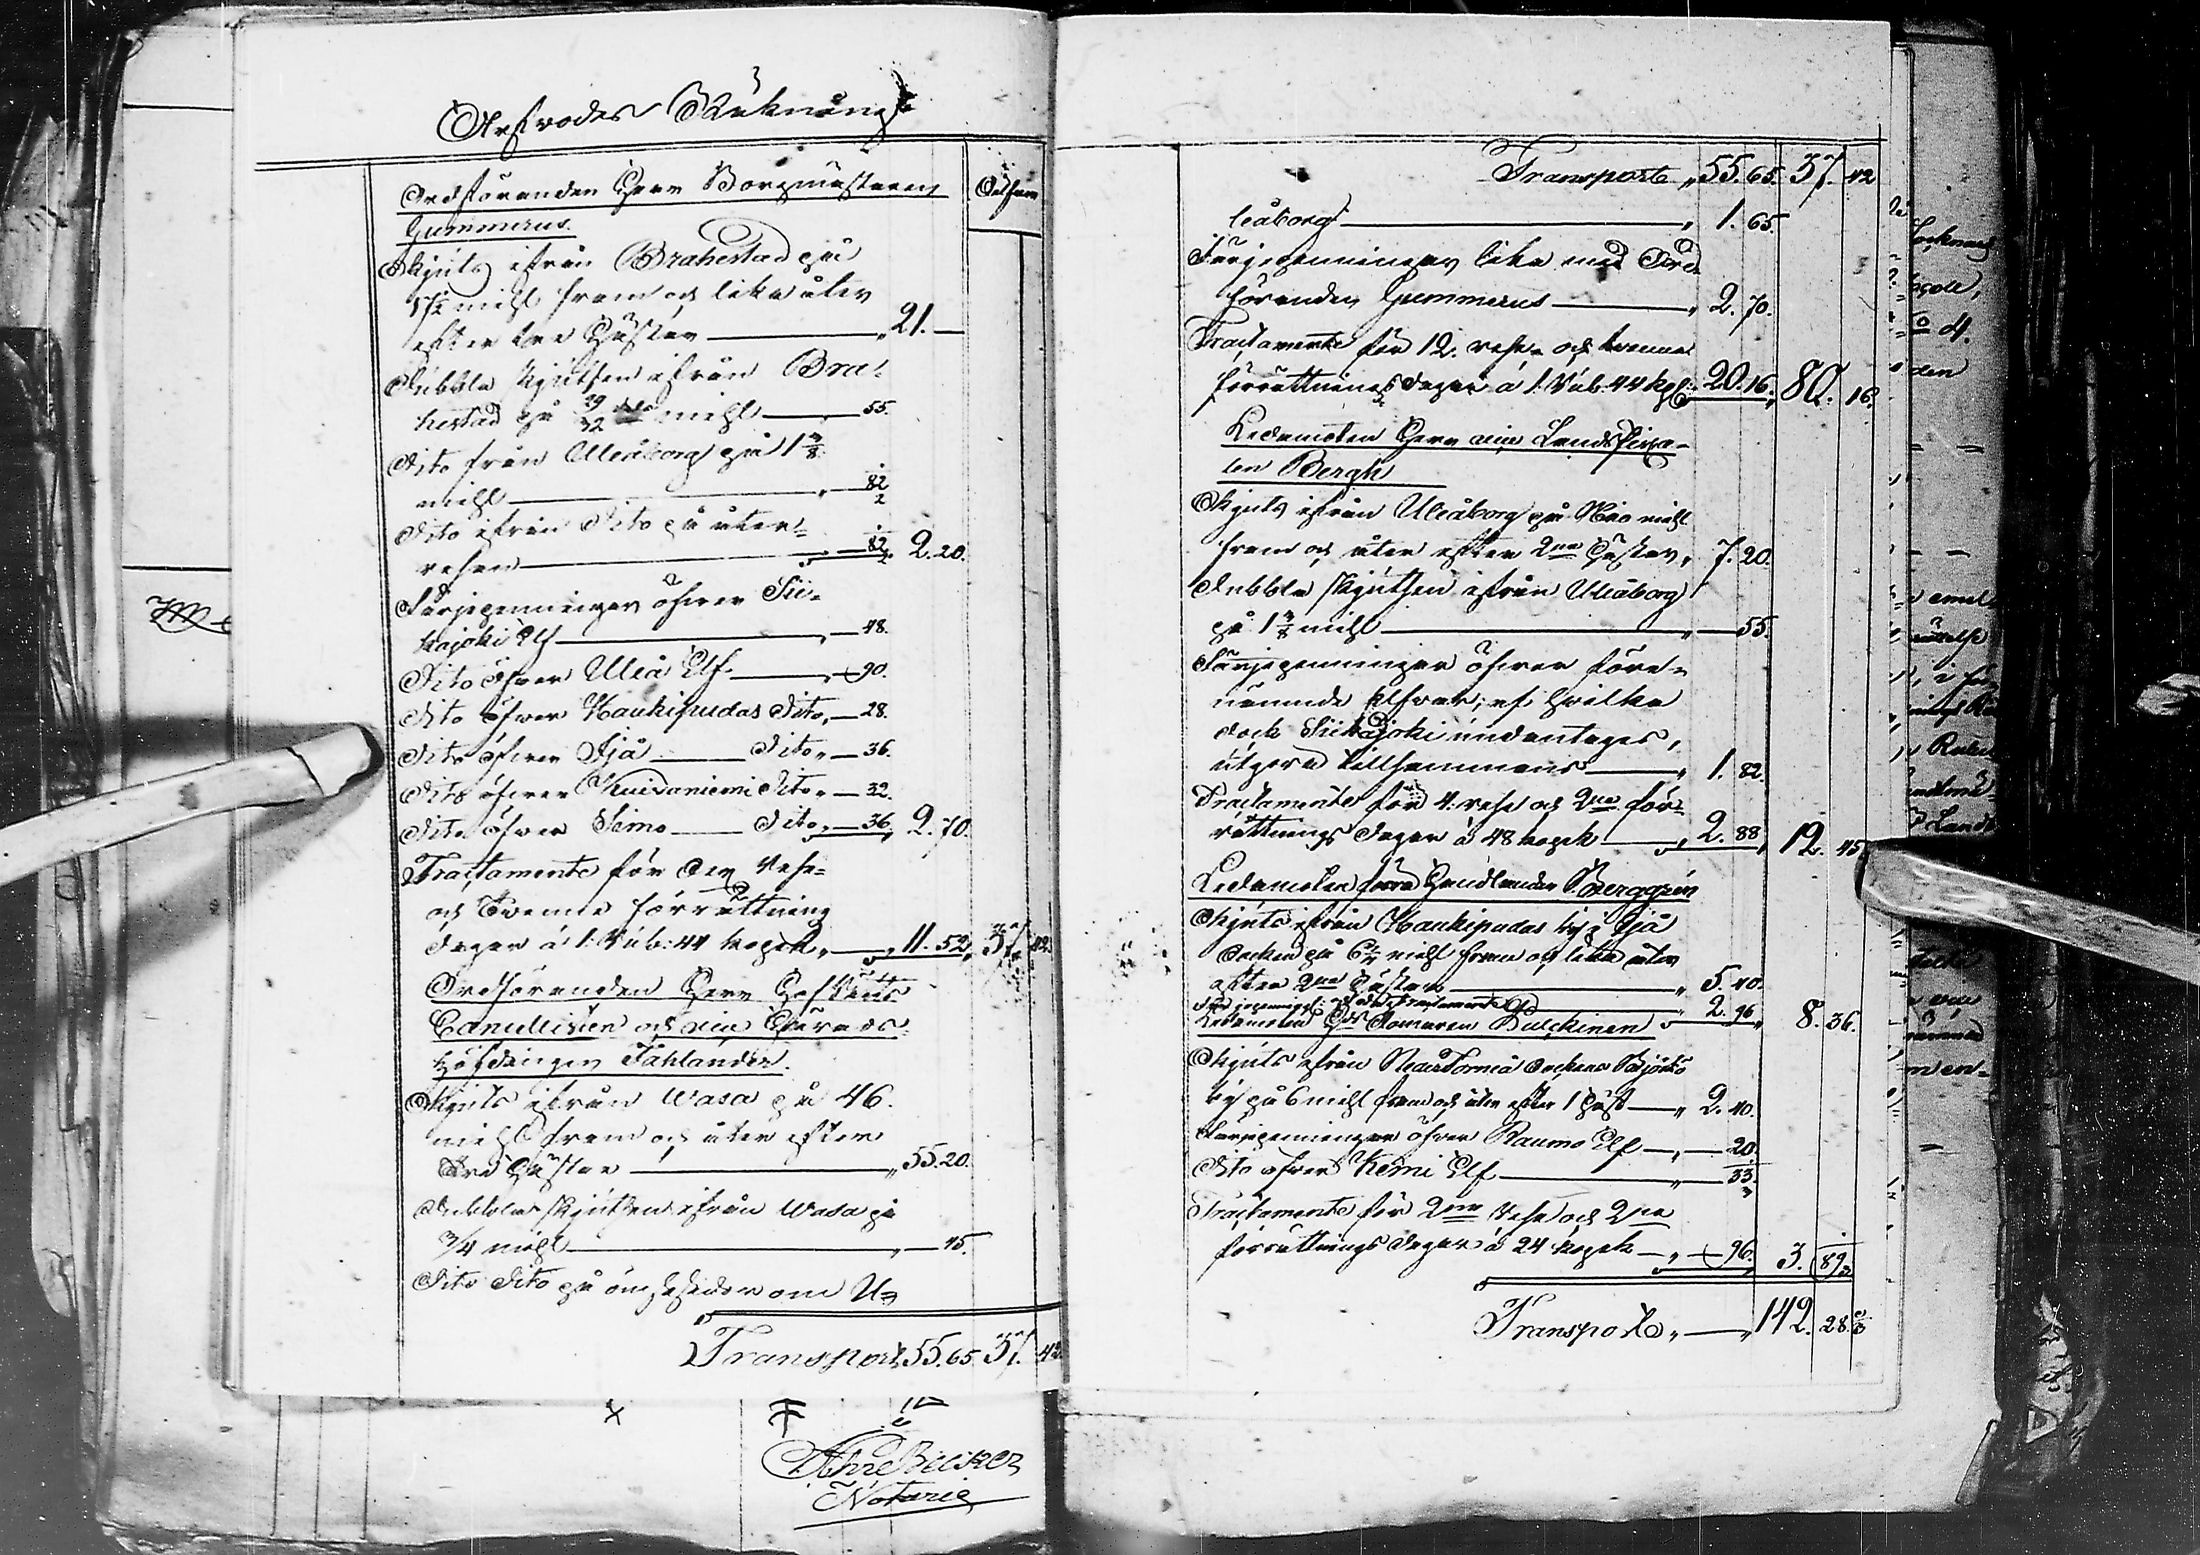 Arfvodes Räkning
Ordföranden Herr Borgmästaren
Gummerus.
Skjuts ifrån Brahestad på
17½ mihl fram och lika åter
efter tre Hästar 21.—
Dubbla skjutsen ifrån Bra-
hestad på 29/32 dels mihl 55.
Dito från Uleåborg på 1 3/8
mihl 82 1/2
Dito ifrån Dito på åter-
resan 82 1/2 2. 20.
Färjepenningar öfver Sii-
kajoki Elf 48.
Dito öfver Uleå Elf 90.
Dito öfver Haukipudas Dito 28.
Dito öfver Ijå Dito 36.
Dito öfver Kuivaniemi Dito 32.
Dito öfver Simo Dito 36. 2. 70.
Tractamente för Sex Rese-
och Tvenne förrättnings
dagar á 1. Rub: 44 kopek 11. 52. 37. 42.
Ordföranden Herr HofRätts
Cancellisten och vice Härads-
höfdingen Fåhlander.
Skjuts ifrån Wasa på 46.
mihl fram och åter efter
Tre Hästar 55. 20.
Dubbla skjutsen ifrån Wasa på
3/4 mihl 45.
Dito Dito på ömse sidor om U-
Transport 55. 65. 37. 42.
Notarie
Transport 55. 65. 37. 42
leåborg 1. 65.
Färjepenningar lika med Ord-
föranden Gummerus 2. 70.
Tractamente för 12. rese- och tvenne
förrättnings dagar á 1. Rub. 44 kop. 20. 16. 80. 16.
Ledamoten Herr vice Landsfiska-
len Bergh
Skjuts ifrån Uleåborg på Nio mihl
fram och åter efter 2ne Hästar 7. 20.
Dubbla skjutsen ifrån Uleåborg
på 1 3/8 mihl 55.
Färjepenningar öfver före-
nämnde elfvar, af hvilka
dock Siikajoki undantages,
utgöra tillsammans 1. 82.
Tractamente för 4. rese och 2ne för-
rättnings dagar á 48 kopek 2. 88. 12. 45.
Ledamoten förra Handlanden Berggrén
Skjuts ifrån Haukipudas by i Ijå
Socken på 6¾ mihl fram och lika åter
efter 2ne Hästar 5. 40.
2. 96. 8. 36.
Ledamoten Hds Domaren Bulckinen
Skjuts ifrån NederTorneå Sockens Björkö
by på 6 mihl fram och åter efter 1 Häst 2. 40.
Färjepenningar öfver Raumo Elf 20.
Dito öfver Kemi Elf 33.
Tractamente för 2ne Rese och 2ne
förrättnings dagar á 24 kopek 96. 3. 89
Transporto 142. 28